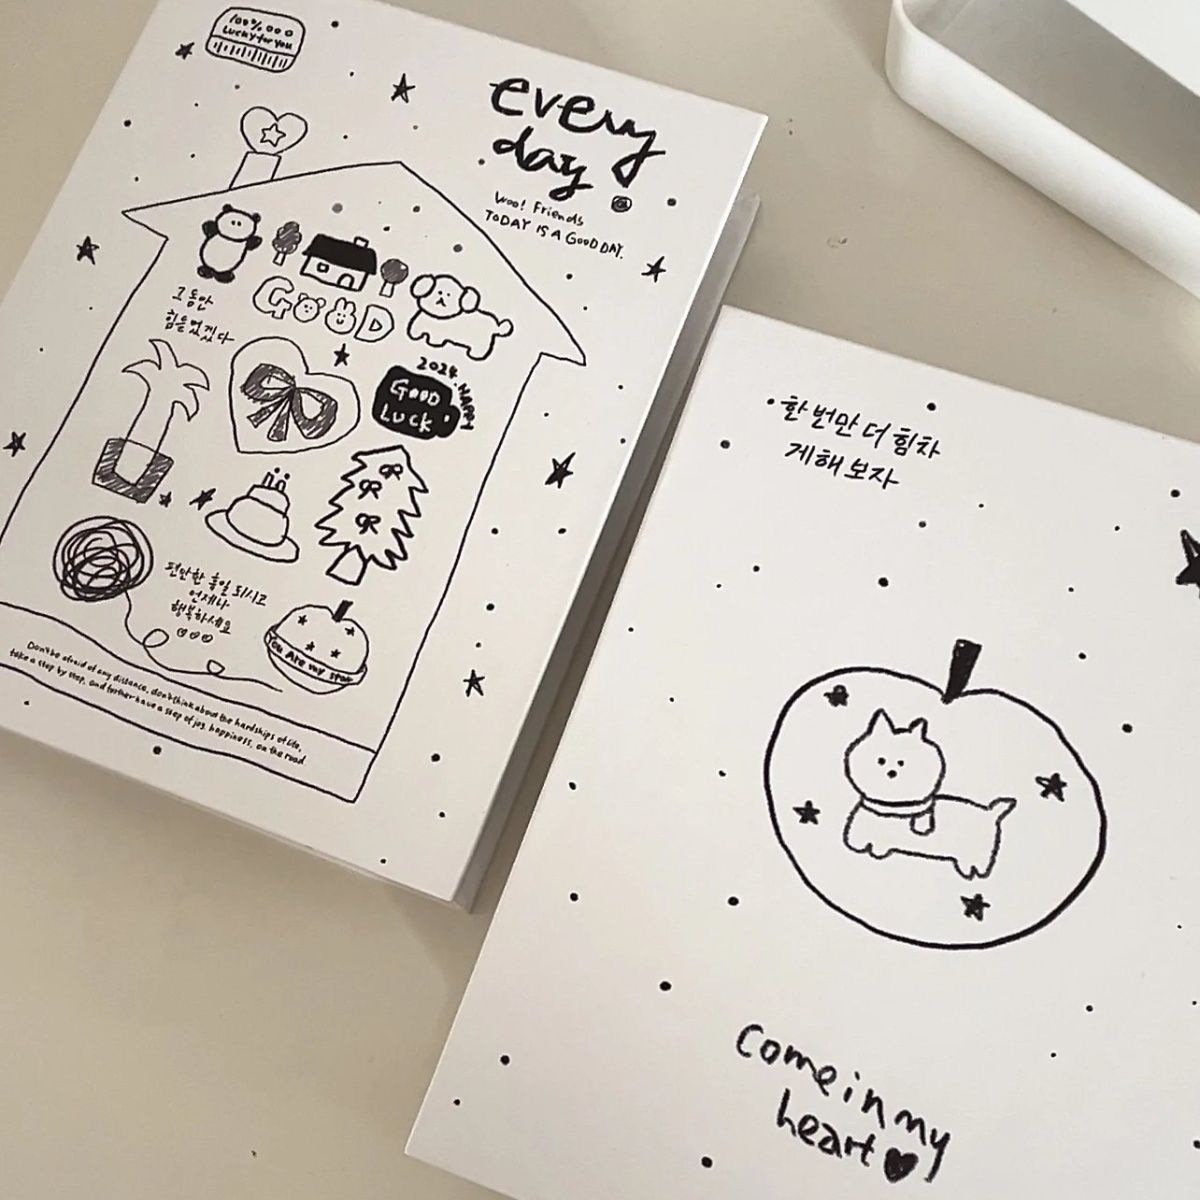 100% ○○○
Lucky for you
every
day
Woo! Friends
TODAY IS A GOOD DAY.
GOOD
그동안
힘들었겠다
2024. HAPPY
GOOD
LUCK
편안한 휴일 되시고
언제나
행복하세요
♡♡♡
You Are my star
Don't be afraid of any distance, don't think about the hardships of life,
take a step by step, and further have a step of joy, happiness, on the road
한 번만 더 힘차
게해 보자
Come in my
heart ♥